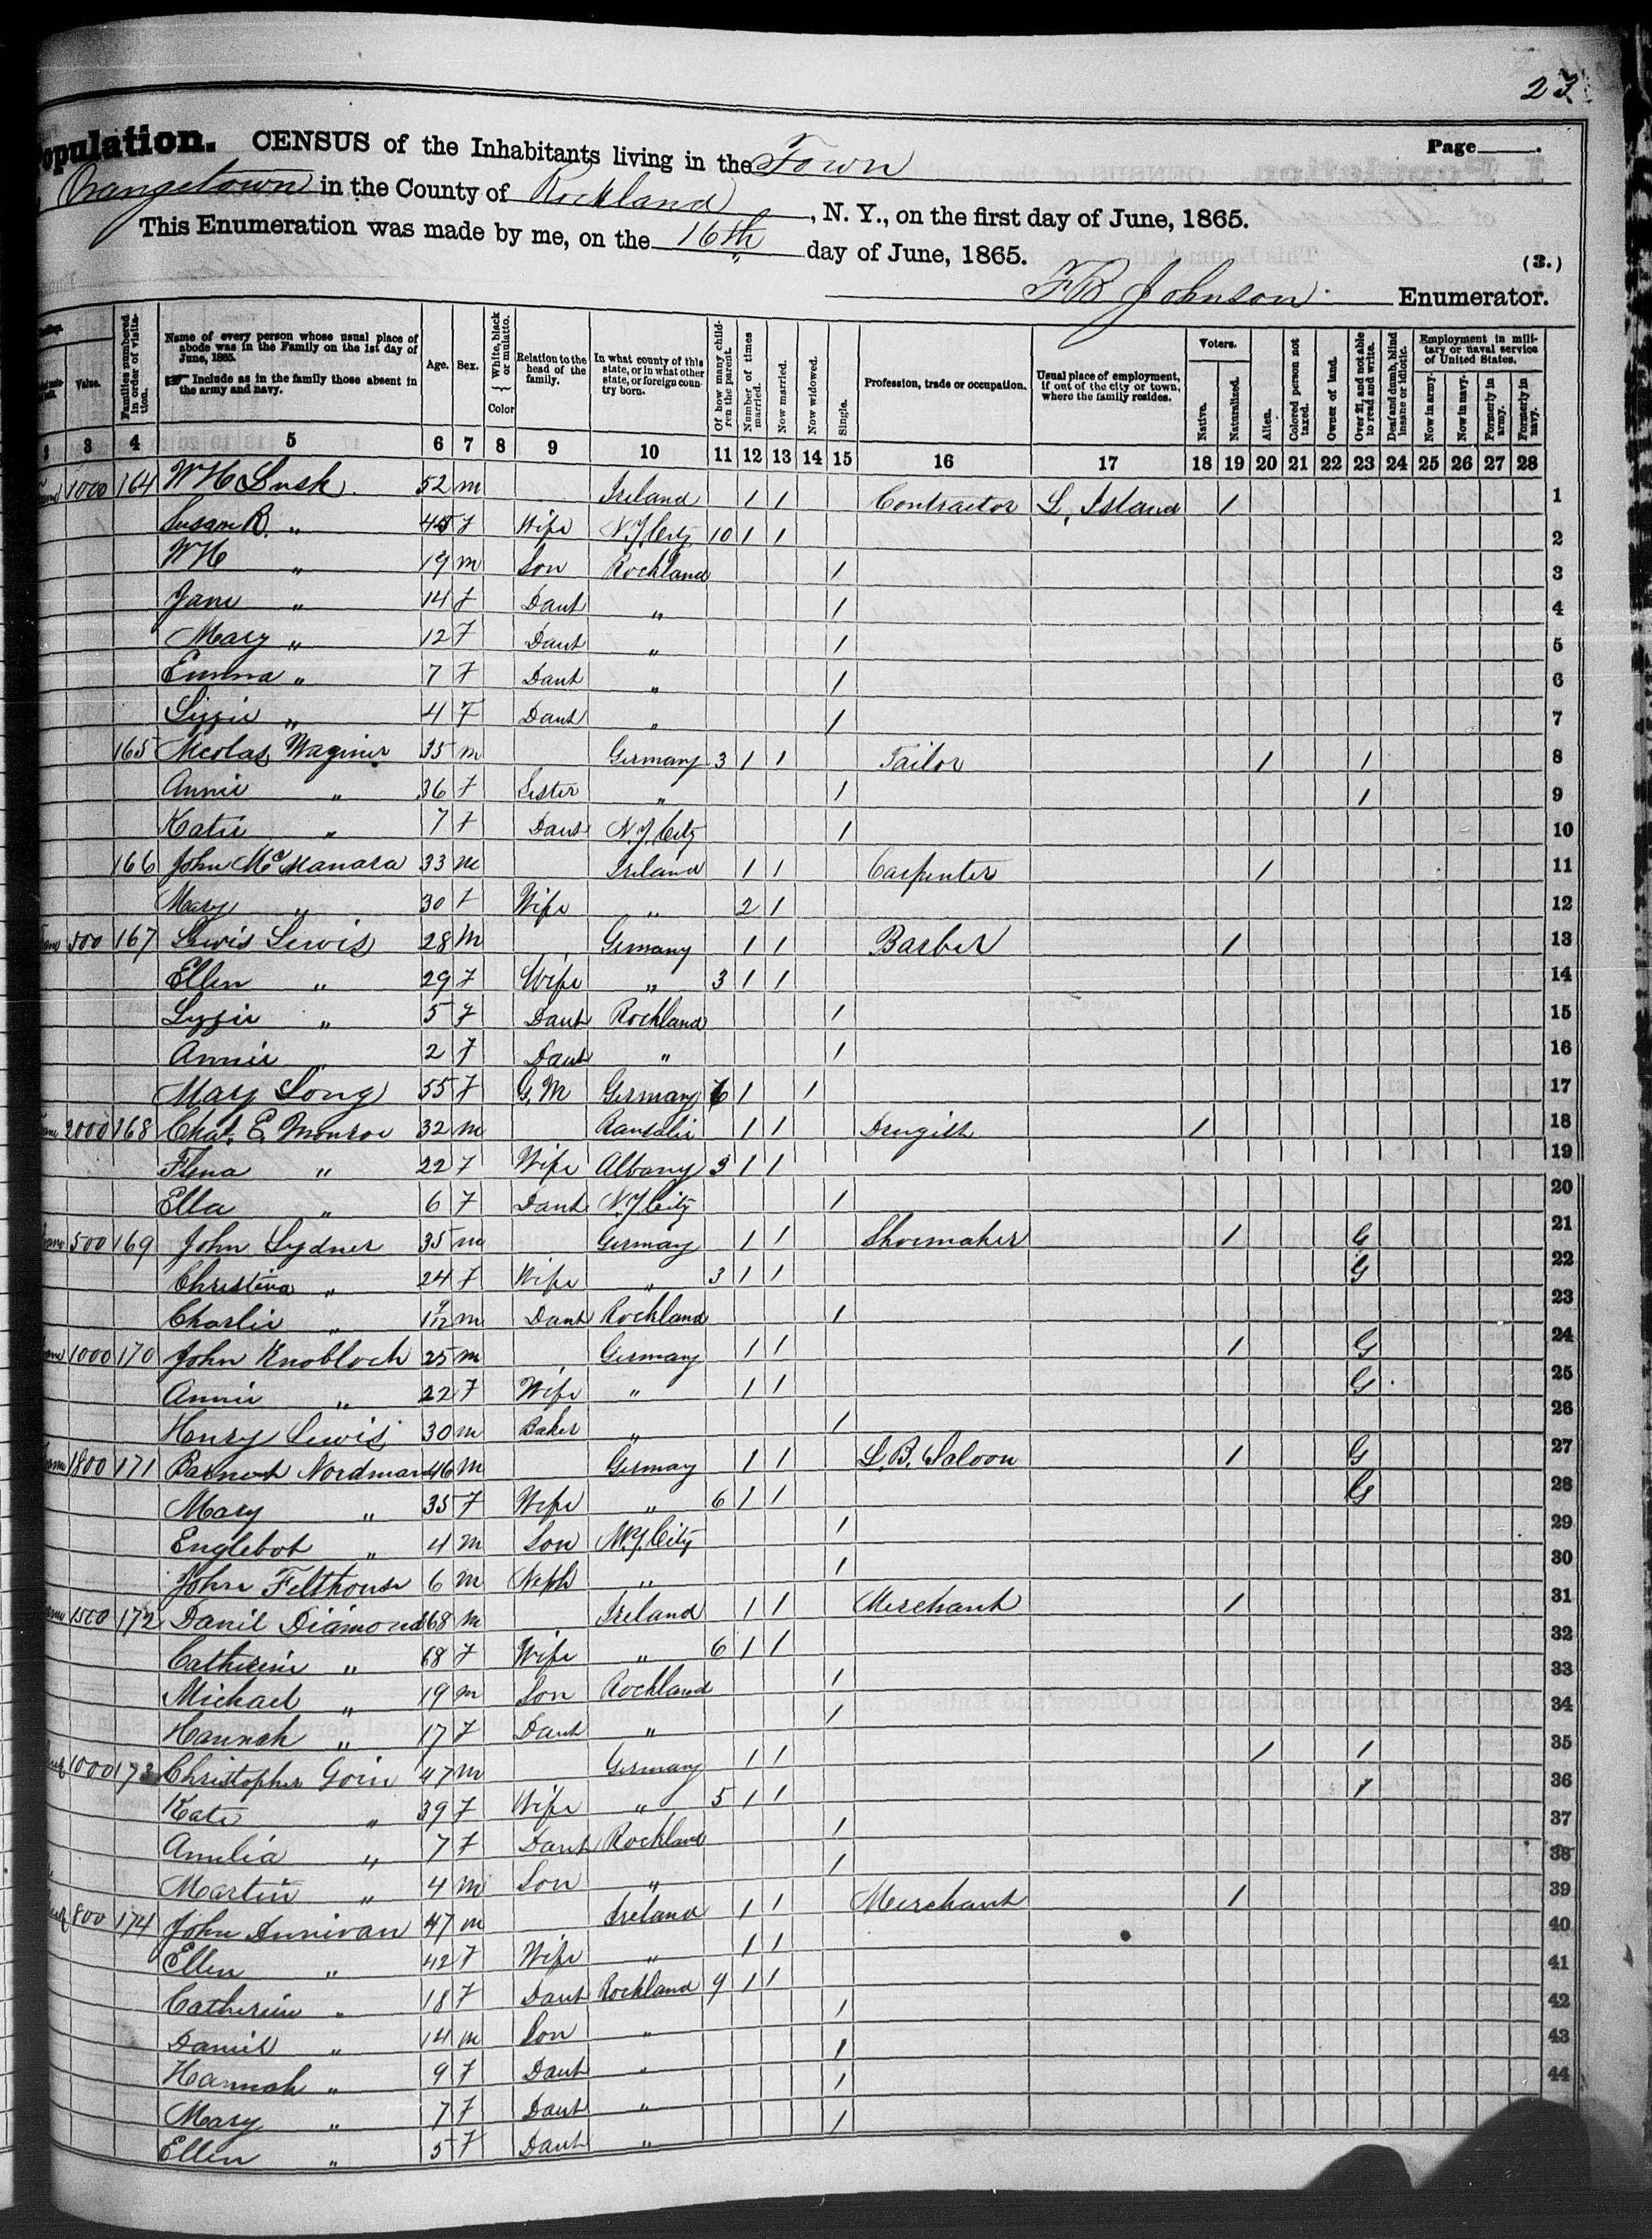 23
Population. CENSUS of the Inhabitants living in the Town
Page
Orangetown in the County of Rockland, N. Y., on the first day of June, 1865.
This Enumeration was made by me, on the 16th day of June, 1865.
(3.)
F B Johnson Enumerator.
Value. Families numbered in order of visitation. Name of every person whose usual place of abode was in the Family on the 1st day of June, 1865. Include as in the family those absent in the army and navy. Age. Sex. White, black or mulatto. Color Relation to the head of the family. In what county of this state, or in what other state, or foreign country born. Of how many children the parent. Number of times married. Now married. Now widowed. Single. Profession, trade or occupation. Usual place of employment, if out of the city or town, where the family resides. Voters. Native. Naturalized. Alien. Colored person not taxed. Owner of land. Over 21 and not able to read and write. Deaf and dumb, blind insane or idiotic. Employment in military or naval service of United States. Now in army. Now in navy. Formerly in army. Formerly in navy.
3 4 5 6 7 8 9 10 11 12 13 14 15 16 17 18 19 20 21 22 23 24 25 26 27 28
1000 164 W H Lusk 52 m Ireland 1 1 Contractor L. Island 1 1
Susan R. " 45 F Wife N.Y. City 10 1 1 2
W H " 19 m Son Rockland 1 3
Jane " 14 F Daut " 1 4
Mary " 12 F Daut " 1 5
Emma " 7 F Daut " 1 6
Lizzie " 4 F Daut " 1 7
165 Nicolas Waginer 35 m Germany 3 1 1 Tailor 1 1 8
Annie " 36 F Sister " 1 1 9
Katie " 7 F Daut N.Y. City 1 10
166 John McManara 33 m Ireland 1 1 Carpenter 1 11
Mary " 30 F Wife " 2 1 12
500 167 Lewis Lewis 28 m Gemany 1 1 Barber 1 13
Ellen " 29 F Wife " 3 1 1 14
Lizzie " 5 F Daut Rockland 1 15
Annie " 2 F Daut " 1 16
Mary Long 55 F G. M Germany 6 1 1 17
2000 168 Chas. E. Monroe 32 m 1 1 Drugist 1 18
Flena " 22 F Wife Albany 3 1 1 19
Ella " 6 F Daut N.Y. City 1 20
500 169 John Lydner 35 m Germany 1 1 Shoemaker 1 G 21
Christina " 24 F Wife " 3 1 1 G 22
Charlie " 1 9/12 m Daut Rockland 1 23
1000 170 John Knobloch 25 m Germany 1 1 1 G 24
Annie " 22 F Wife " 1 1 G 25
Henry Lewis 30 m Baker " 1 26
1800 171 Nordman 46 m Germay 1 1 L. B. Saloon 1 G 27
Mary " 35 F Wife " 6 1 1 G 28
Englebot " 4 m Son N.Y. City 1 29
John Felthouse 6 m Neph " 1 30
1500 172 Danil Diamond 68 m Ireland 1 1 Merchant 1 31
Catherine " 68 F Wife " 6 1 1 32
Michael " 19 m Son Rockland 1 33
Hannah " 17 F Daut " 1 34
1000 173 Christopher Goin 47 m Germany 1 1 1 1 35
Kate " 39 F Wife " 5 1 1 1 36
Amelia " 7 F Daut Rockland 1 37
Martin " 4 m Son " 1 38
800 174 John Dunivan 47 m Ireland 1 1 Merchant 1 39
Ellen " 42 F Wife " 1 1 40
Catherine " 18 F Daut Rockland 9 1 1 41
Daniel " 14 m Son " 1 42
Hannah " 9 F Daut " 1 43
Mary " 7 F Daut " 1 44
Ellen " 5 F Daut " 1